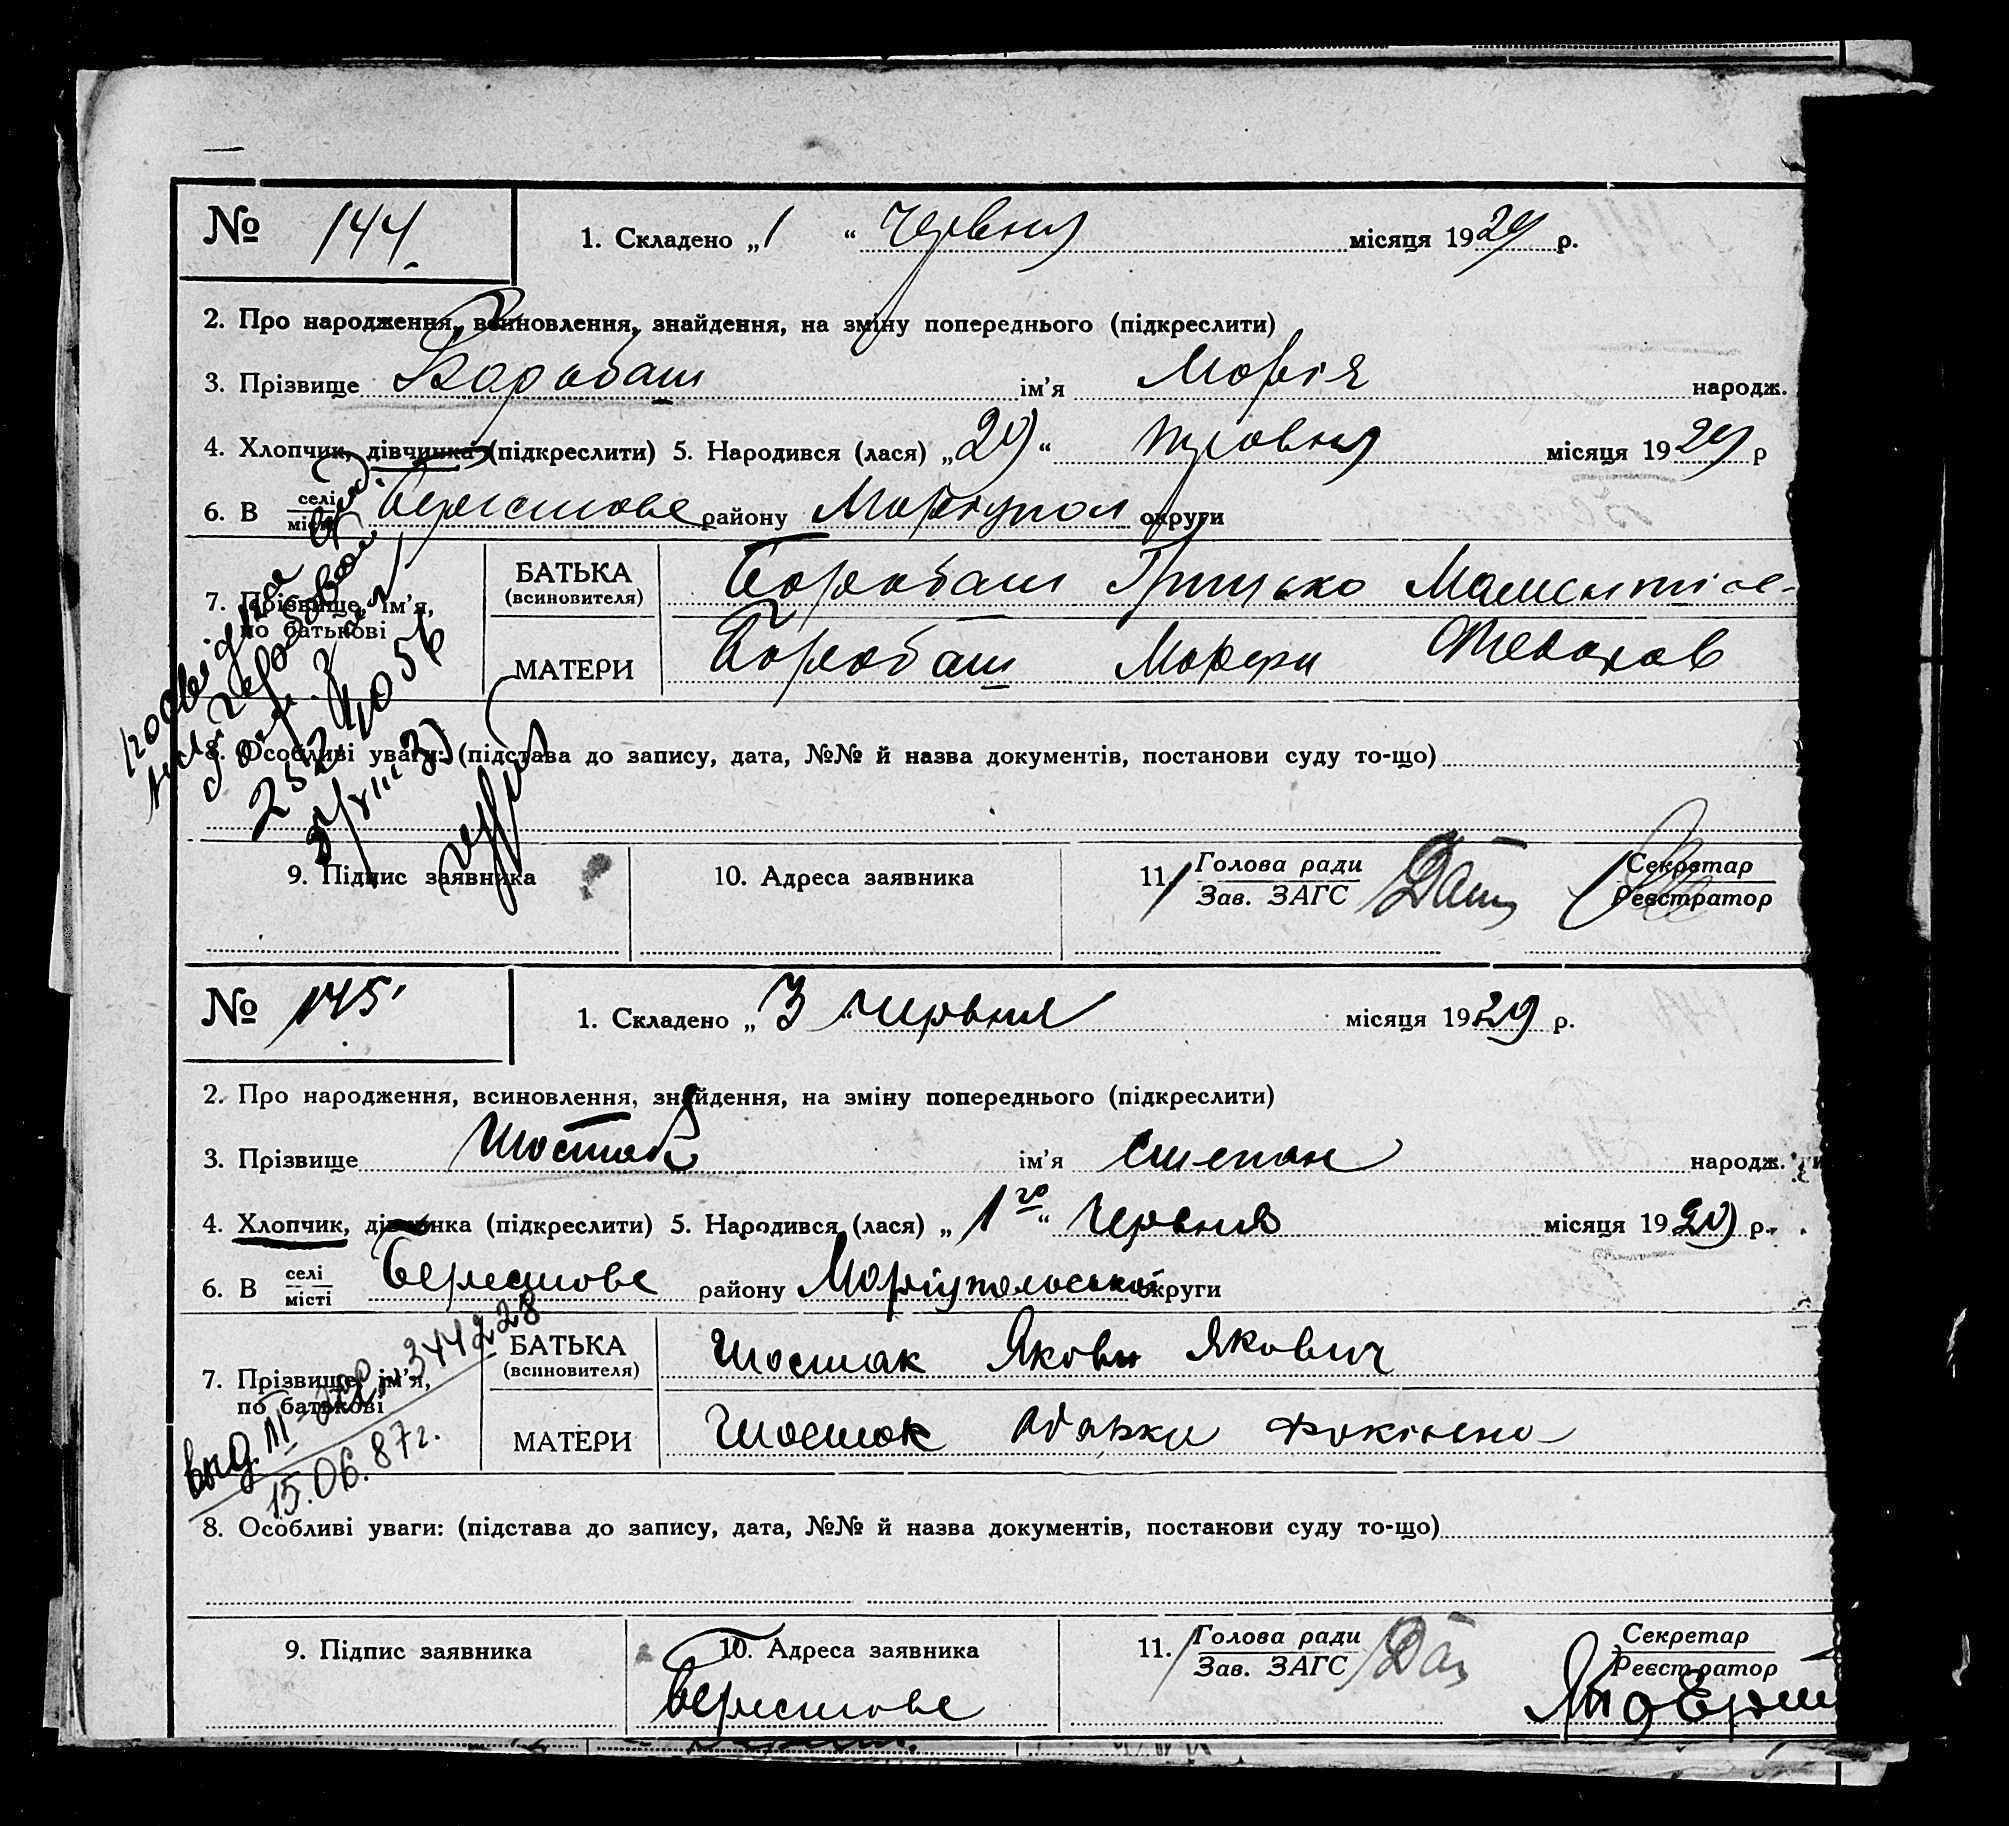 № 144. 1. Складено „1“ Червня місяця 1929 р.
2. Про народження, всиновлення, знайдення, на зміну попереднього (підкреслити)
3. Прізвище Барабаш ім'я Марія народж.
4. Хлопчик, дівчинка (підкреслити) 5. Народився (лася) „29“ травня місяця 1929 р
6. В селі місті Берестове району Маріупол округи
7. Прізвище, ім'я, по батькові
БАТЬКА (всиновителя) Барабаш Грицько
МАТЕРИ Барабаш
252 4056
8. Особливі уваги: (підстава до запису, дата, №№ й назва документів, постанови суду то-що)
9. Підпис заявника 10. Адреса заявника 11. Голова ради Зав. ЗАГС Секретар Реєстратор
№ 145 1. Складено „3 Червня місяця 1929 р.
2. Про народження, всиновлення, знайдення, на зміну попереднього (підкреслити)
3. Прізвище Шостак ім'я Степан народж.
4. Хлопчик, дівчинка (підкреслити) 5. Народився (лася) „1го“ Червня місяця 1929 р.
6. В селі місті Берестове району Маріупольської округи
7. Прізвище, ім'я, по батькові
БАТЬКА (всиновителя) Шостак Яков Якович
МАТЕРИ Шостак
выд. 344228
15.06.87г.
8. Особливі уваги: (підстава до запису, дата, №№ й назва документів, постанови суду то-що)
9. Підпис заявника 10. Адреса заявника 11. Голова ради Зав. ЗАГС Секретар Реєстратор
Берестове